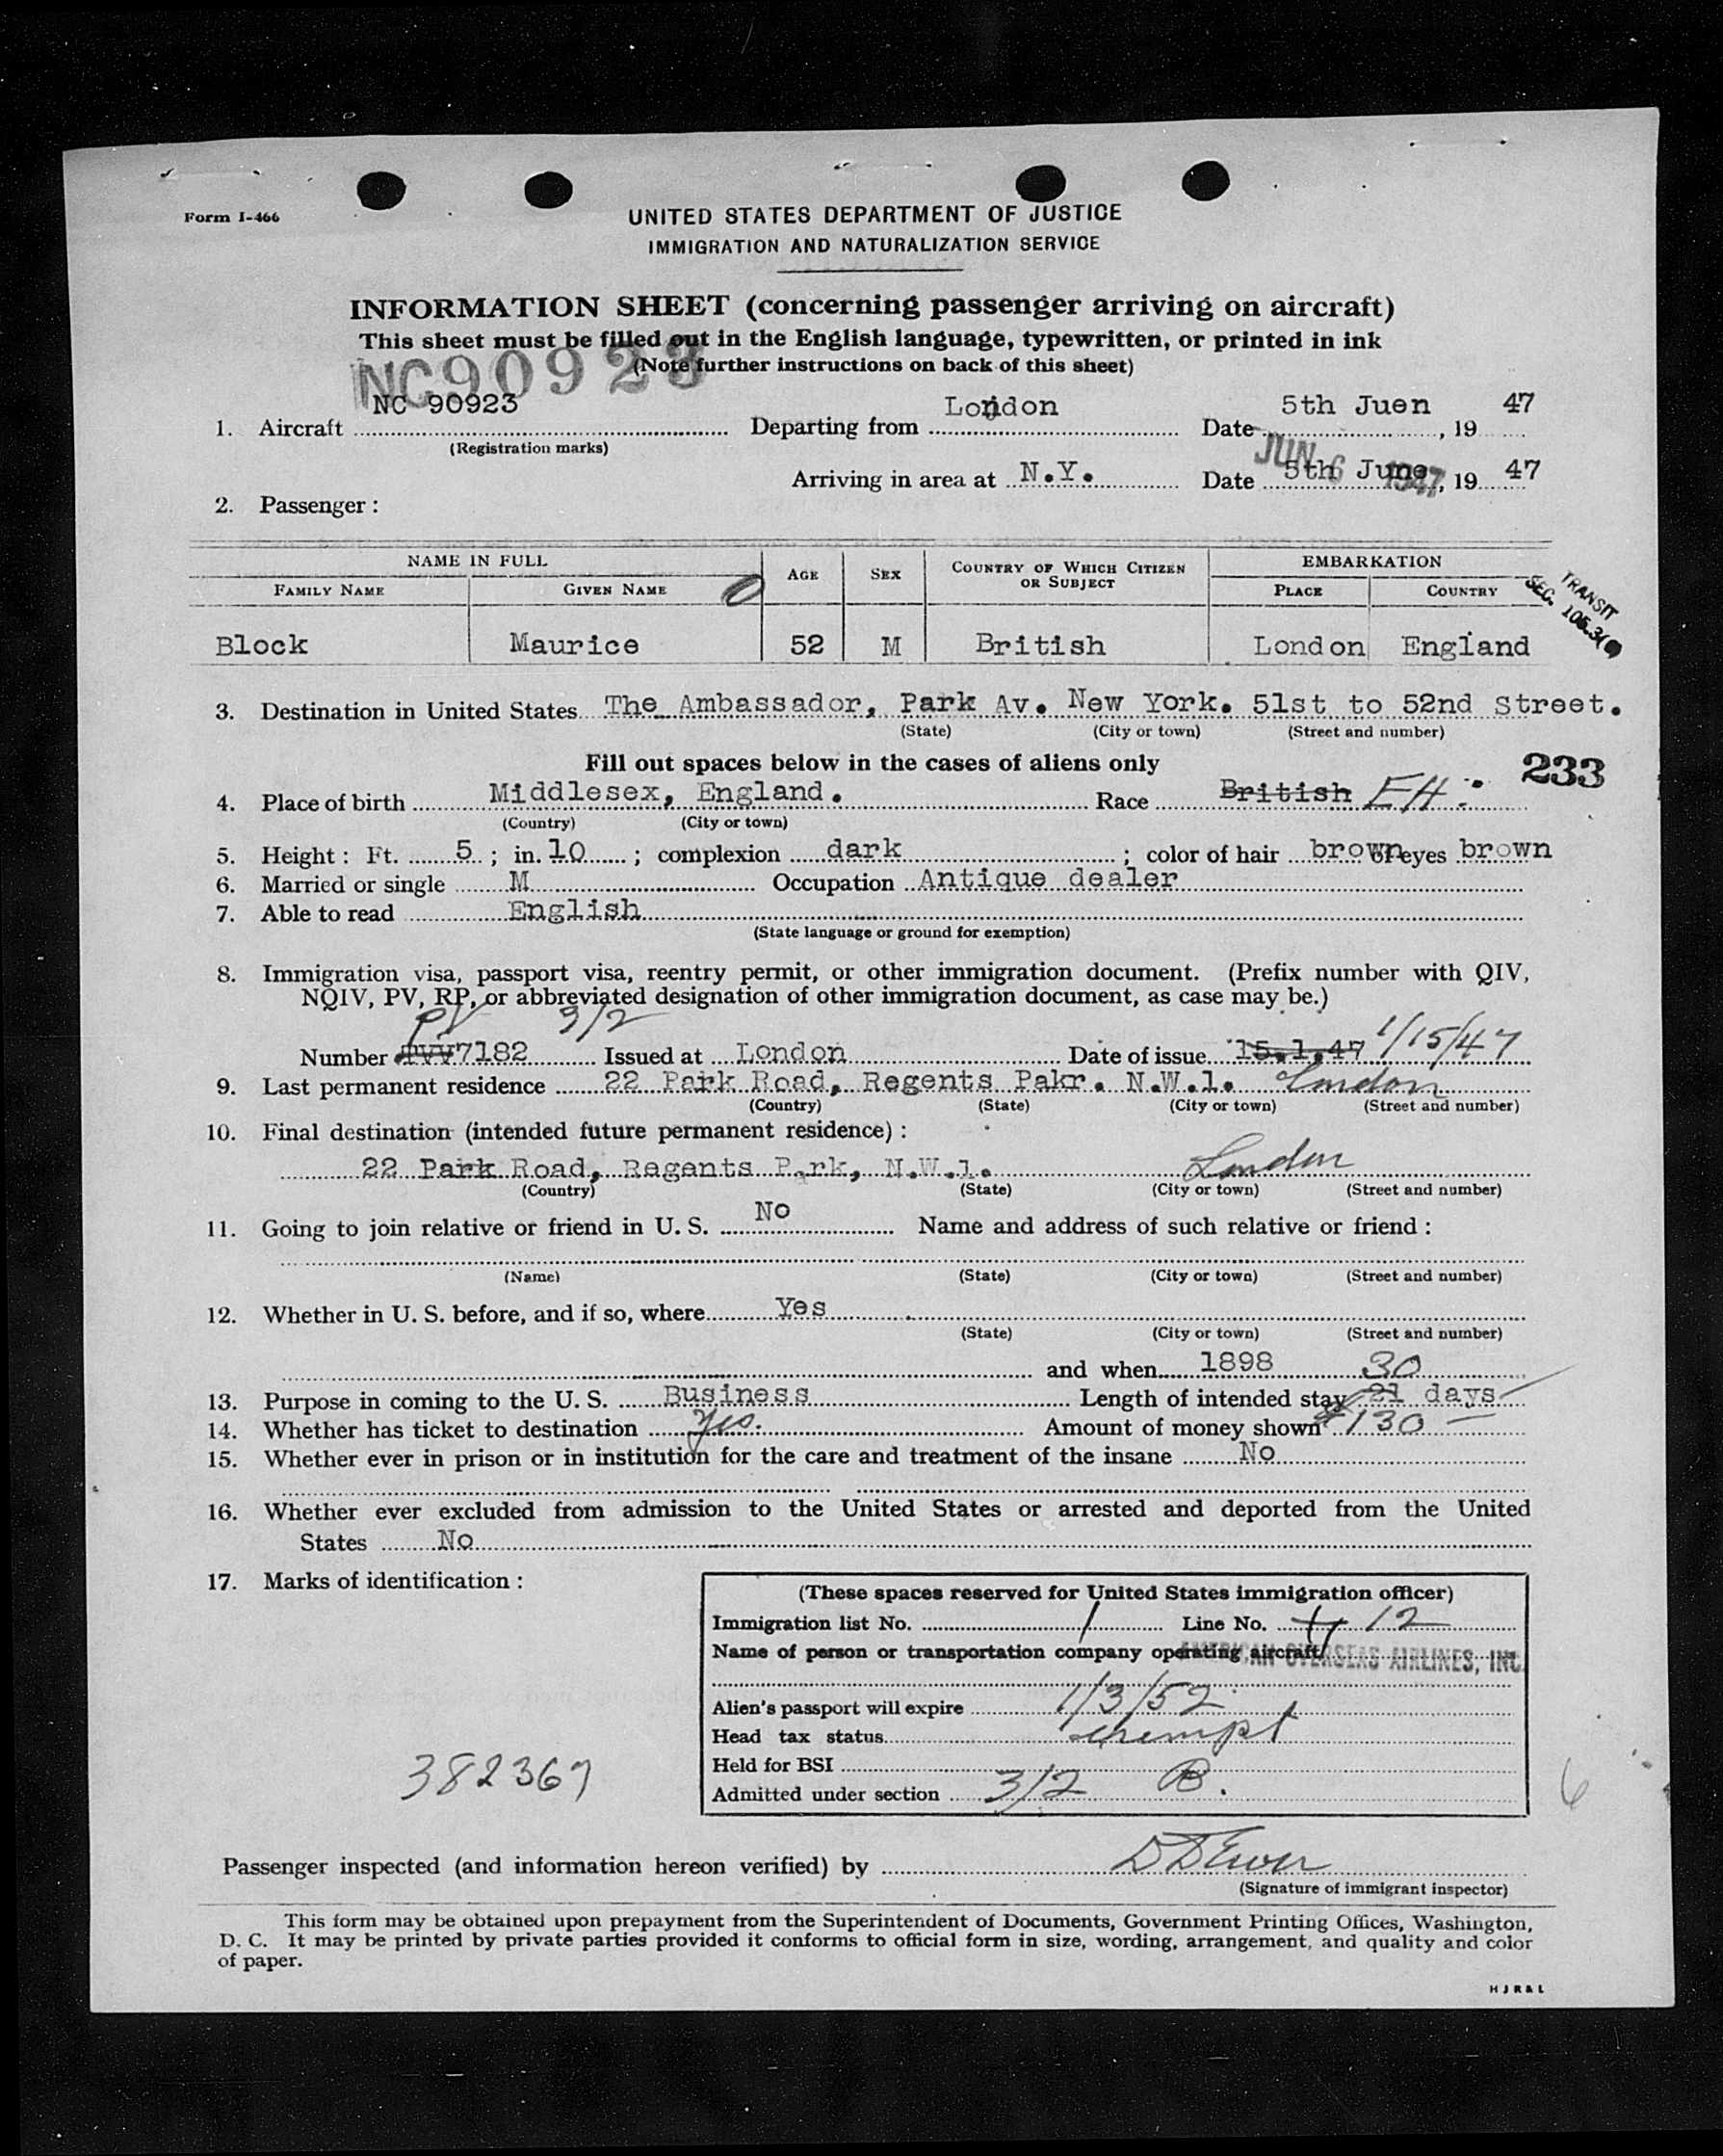 Form I-466
UNITED STATES DEPARTMENT OF JUSTICE
IMMIGRATION AND NATURALIZATION SERVICE
INFORMATION SHEET (concerning passenger arriving on aircraft)
This sheet must be filled out in the English language, typewritten, or printed in ink
(Note further instructions on back of this sheet)
NC90923
NC 90923 London 5th Juen 47
1. Aircraft Departing from Date , 19
(Registration marks)
JUN 6 1947
Arriving in area at N.Y. Date 5th June, 19 47
2. Passenger :
NAME IN FULL AGE SEX COUNTRY OF WHICH CITIZEN OR SUBJECT EMBARKATION
FAMILY NAME GIVEN NAME PLACE COUNTRY
TRANSIT
SEC. 105.3(
Block Maurice 52 M British London England
3. Destination in United States The Ambassador, Park Av. New York. 51st to 52nd Street.
(State) (City or town) (Street and number)
Fill out spaces below in the cases of aliens only
233
4. Place of birth Middlesex, England. Race British
(Country) (City or town)
5. Height : Ft. 5 ; in. 10 ; complexion dark ; color of hair brown of eyes brown
6. Married or single M Occupation Antique dealer
7. Able to read English
(State language or ground for exemption)
8. Immigration visa, passport visa, reentry permit, or other immigration document. (Prefix number with QIV,
NQIV, PV, RP, or abbreviated designation of other immigration document, as case may be.)
PV 3/2
Number 7182 Issued at London Date of issue 15.1.47 1/15/47
9. Last permanent residence 22 Park Road, Regents Pakr. N.W.1. London
(Country) (State) (City or town) (Street and number)
10. Final destination (intended future permanent residence) :
22 Park Road, Regents Park, N.W.1. London
(Country) (State) (City or town) (Street and number)
11. Going to join relative or friend in U. S. No Name and address of such relative or friend :
(Name) (State) (City or town) (Street and number)
12. Whether in U. S. before, and if so, where Yes
(State) (City or town) (Street and number)
and when 1898 30
13. Purpose in coming to the U. S. Business Length of intended stay 21 days
14. Whether has ticket to destination Yes. Amount of money shown $130
15. Whether ever in prison or in institution for the care and treatment of the insane No
16. Whether ever excluded from admission to the United States or arrested and deported from the United
States No
17. Marks of identification :
(These spaces reserved for United States immigration officer)
Immigration list No. 1 Line No. 4 12
Name of person or transportation company operating aircraft AMERICAN OVERSEAS AIRLINES, INC.
Alien's passport will expire 1/3/52
Head tax status exempt
Held for BSI
Admitted under section 3/2 B.
382367
6
Passenger inspected (and information hereon verified) by
(Signature of immigrant inspector)
This form may be obtained upon prepayment from the Superintendent of Documents, Government Printing Offices, Washington,
D. C. It may be printed by private parties provided it conforms to official form in size, wording, arrangement, and quality and color
of paper.
H J R & L